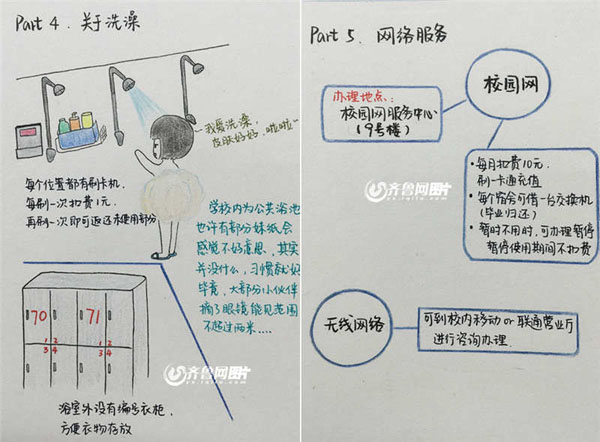 Part 4. 关于洗澡
"我爱洗澡,
皮肤好好,啦啦~"
每个位置都有刷卡机,
每刷一次扣费1元,
再刷一次即可返还未使用部分
学校内为公共浴池
也许有部分妹纸会
感觉不好意思,其实
并没什么,习惯就好
毕竟,大部分小伙伴
摘了眼镜能见范围
不超过两米....
70
71
1 2
3 4
1 2
3 4
浴室外设有编号衣柜,
方便衣物存放
齐鲁网图片
Part 5. 网络服务
校园网
办理地点:
校园网服务中心
(9号楼)
齐鲁网图片
• 每月扣费10元.
刷一卡通充值
• 每个宿舍可借一台交换机
(毕业归还)
• 暂时不用时,可办理暂停
暂停使用期间不扣费
无线网络
可到校内移动or联通营业厅
进行咨询办理